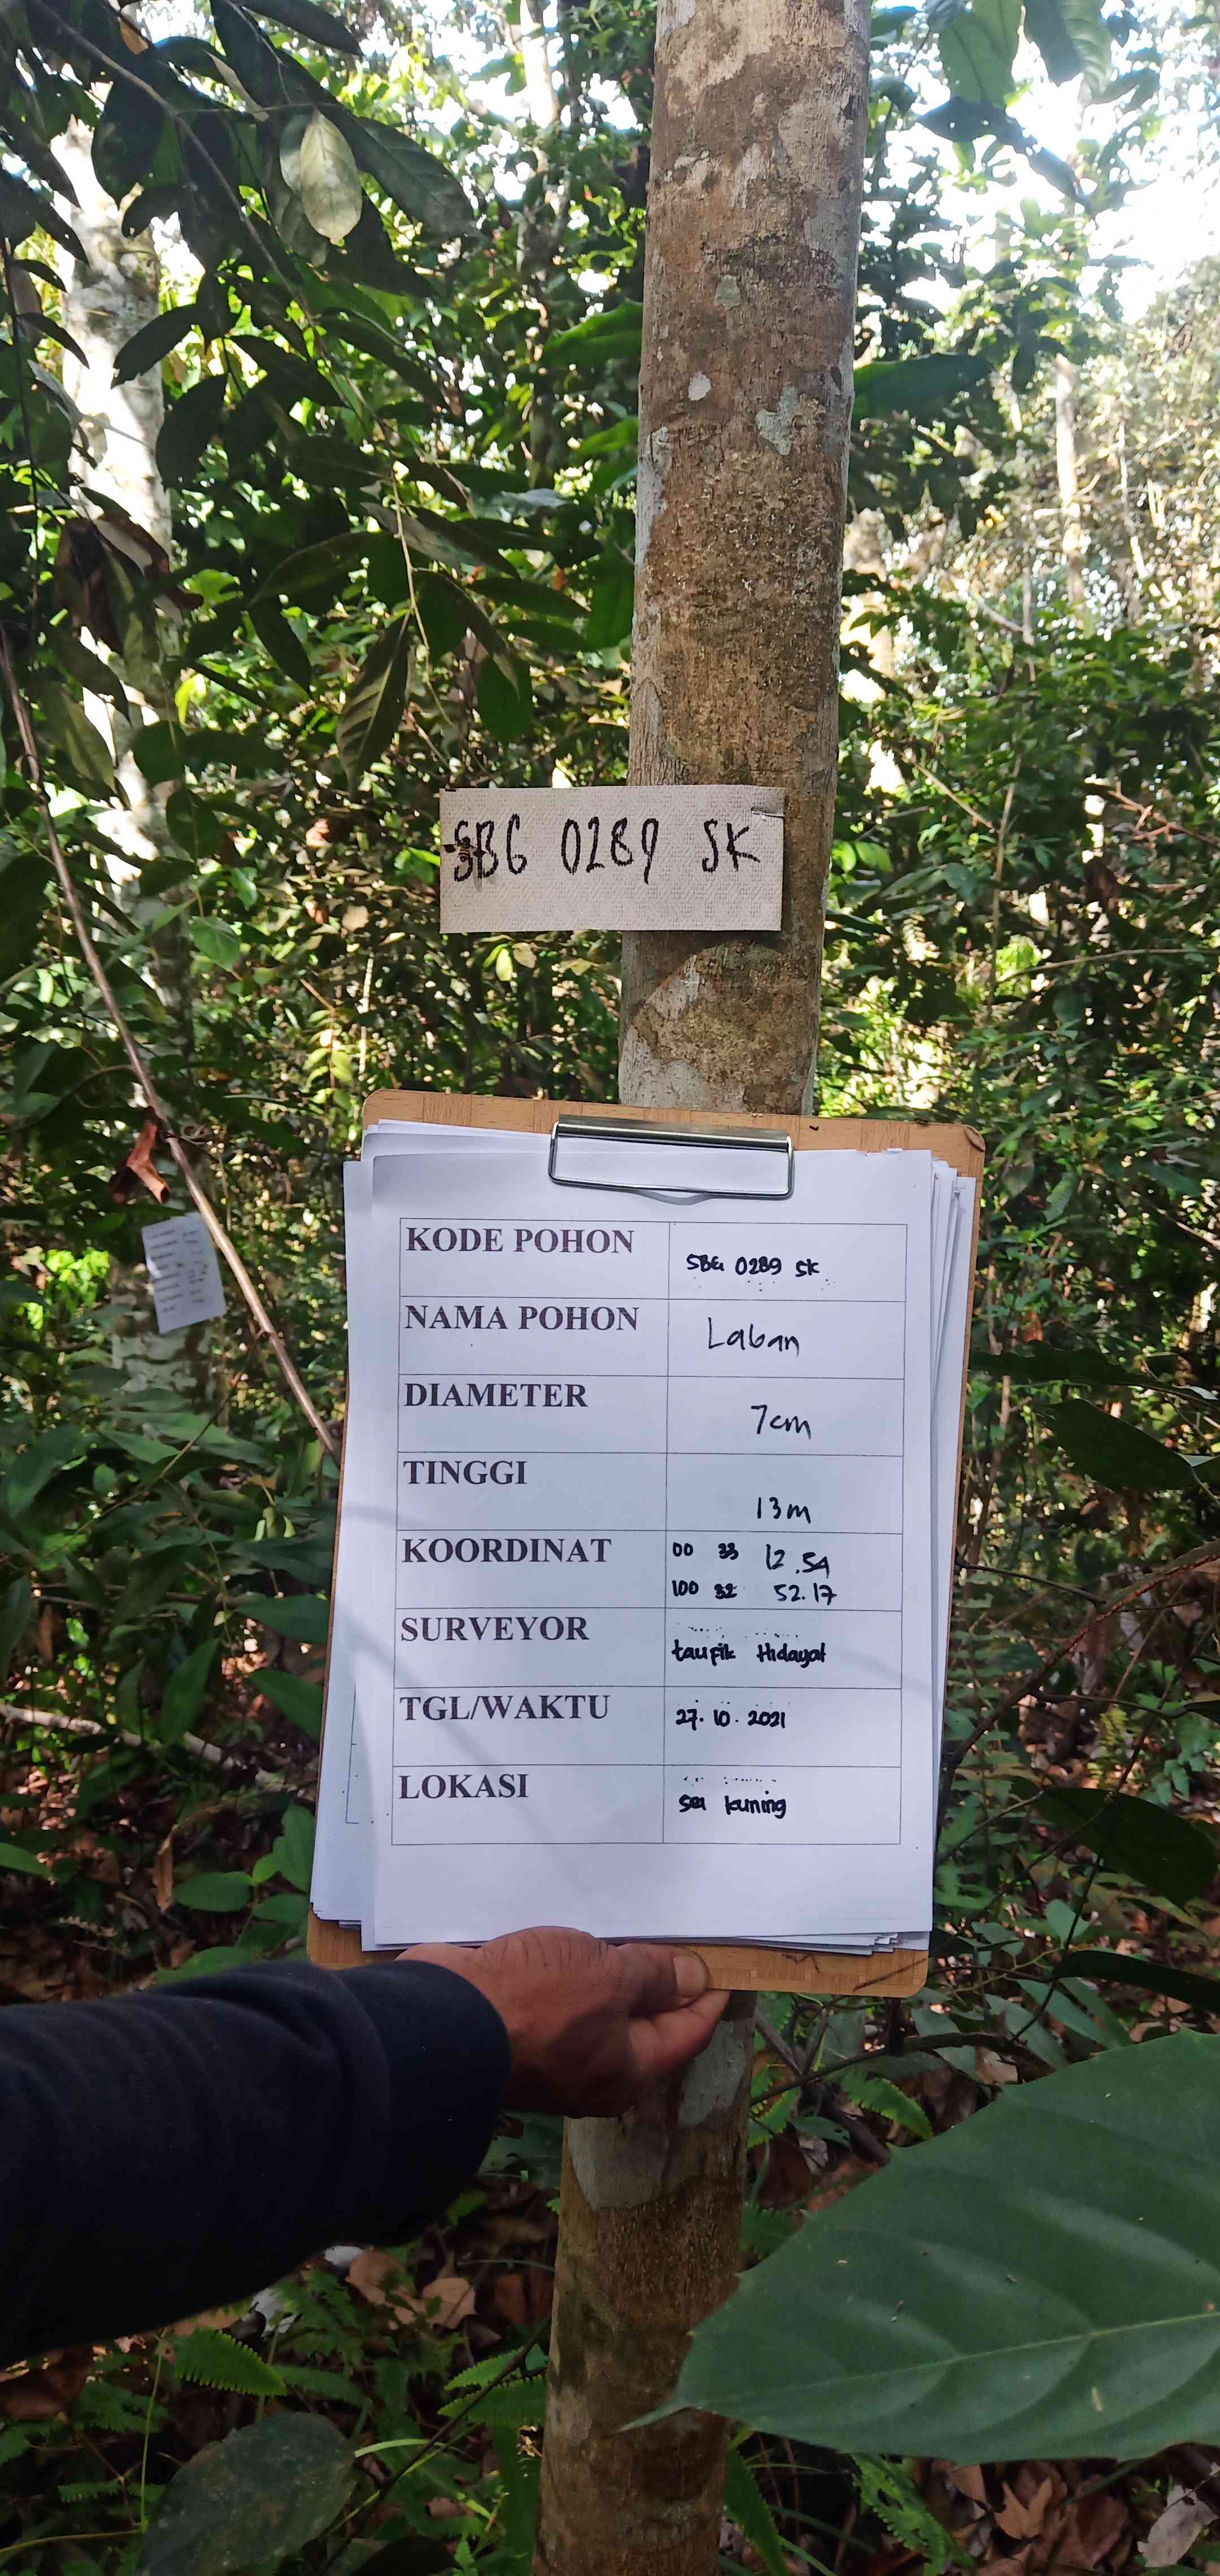 SBG 0289 SK
KODE POHON SBG 0289 SK
NAMA POHON Laban
DIAMETER 7cm
TINGGI 13m
KOORDINAT 00 33 12.54
100 32 52.17
SURVEYOR taufik Hidayat
TGL/WAKTU 27.10.2021
LOKASI sei kuning